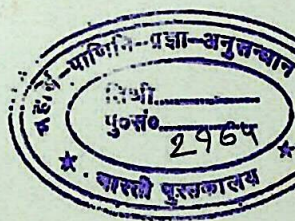 महर्षि-पाणिनि-प्रज्ञा-अनुसन्धान
तिथी..............
पु०सं०..............
2964
भारती पुस्तकालय